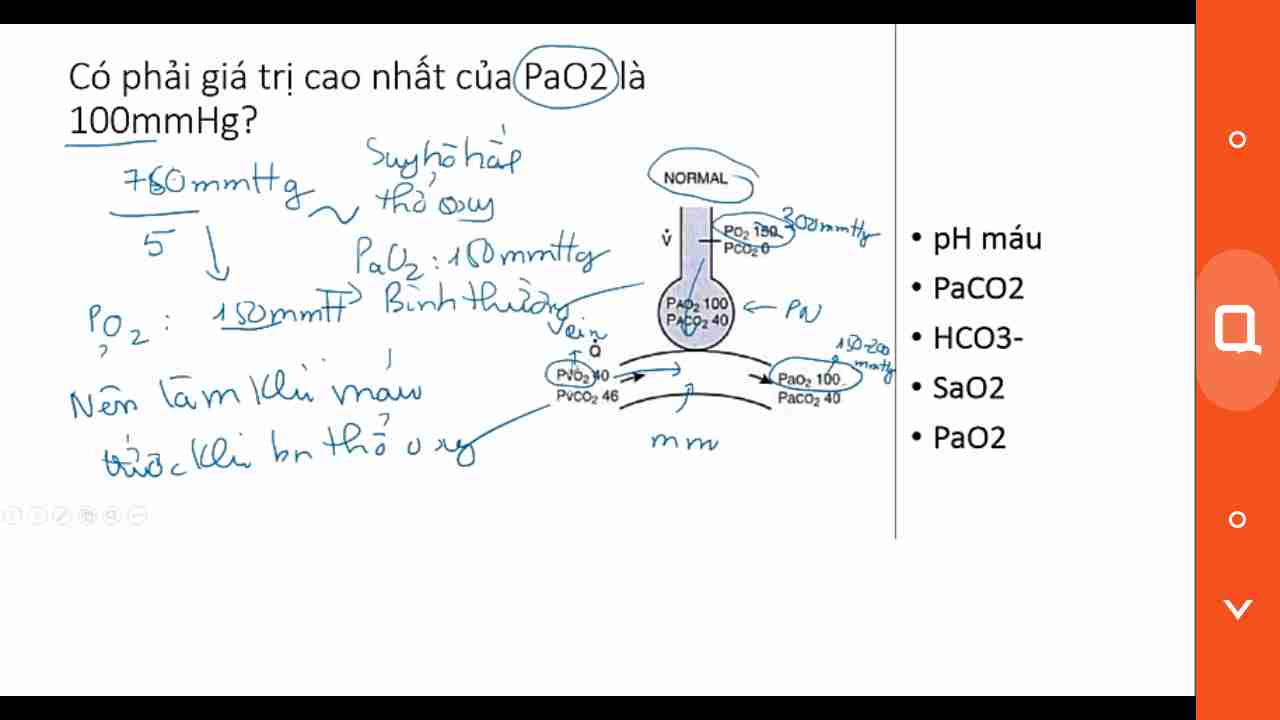 Có phải giá trị cao nhất của PaO2 là
100mmHg?
760mmHg
5
Suy hô hấp
thở oxy
PaO2 : 150mmHg
PO2 : 150mmH
Bình thường
Nên làm khí máu
trước khi bn thở oxy
NORMAL
V̇
PO2 150
300mmHg
PCO2 0
PAO2 100
PACO2 40
Q̇
PVO2 40
PVCO2 46
150-200
mmHg
PaO2 100
PaCO2 40
mm
• pH máu
• PaCO2
• HCO3-
• SaO2
• PaO2